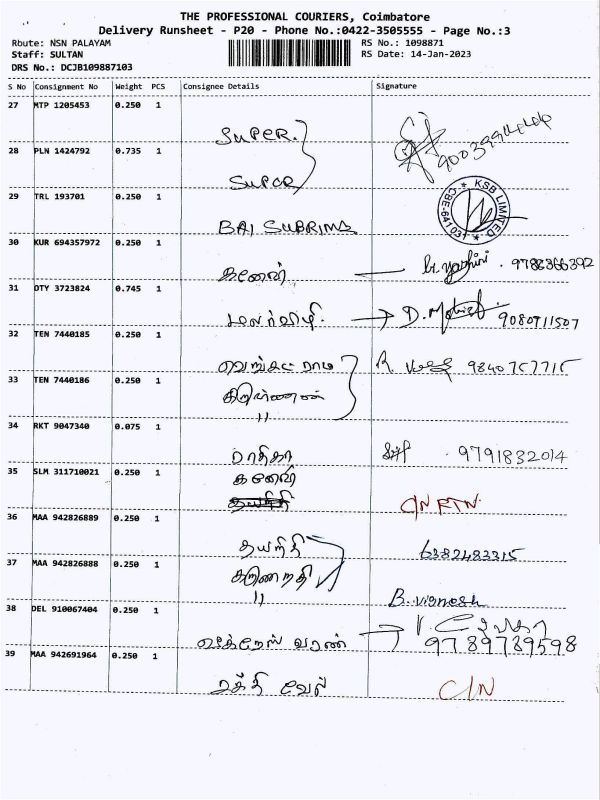 THE PROFESSIONAL COURIERS, Coimbatore
Delivery Runsheet - P20 - Phone No.:0422-3505555 - Page No.:3
Rbute: NSN PALAYAM
RS No.: 1098871
Staff: SULTAN
RS Date: 14-Jan-2023
DRS No.: DCJB109887103
S No Consignment No Weight PCS Consignee Details Signature
27 MTP 1205453 0.250 1
SUPER.
28 PLN 1424792 0.735 1
SUPER
29 TRL 193701 0.250 1
KSB LIMITED * CBE-641 031 *
BAI SUBRIMS
30 KUR 694357972 0.250 1
9788366392
31 DTY 3723824 0.745 1
மலர்விழி. → D. 9080711507
32 TEN 7440185 0.250 1
வெங்கட் ராம R 9840757715
33 TEN 7440186 0.250 1
"
34 RKT 9047340 0.075 1
ராதிகா 9791832014
35 SLM 311710021 0.250 1
C/N RTN.
36 MAA 942826889 0.250 1
6382483315
37 MAA 942826888 0.250 1
" B. vignesh
38 DEL 910067404 0.250 1
→ 9789789598
39 MAA 942691964 0.250 1
சக்தி வேல் C/N